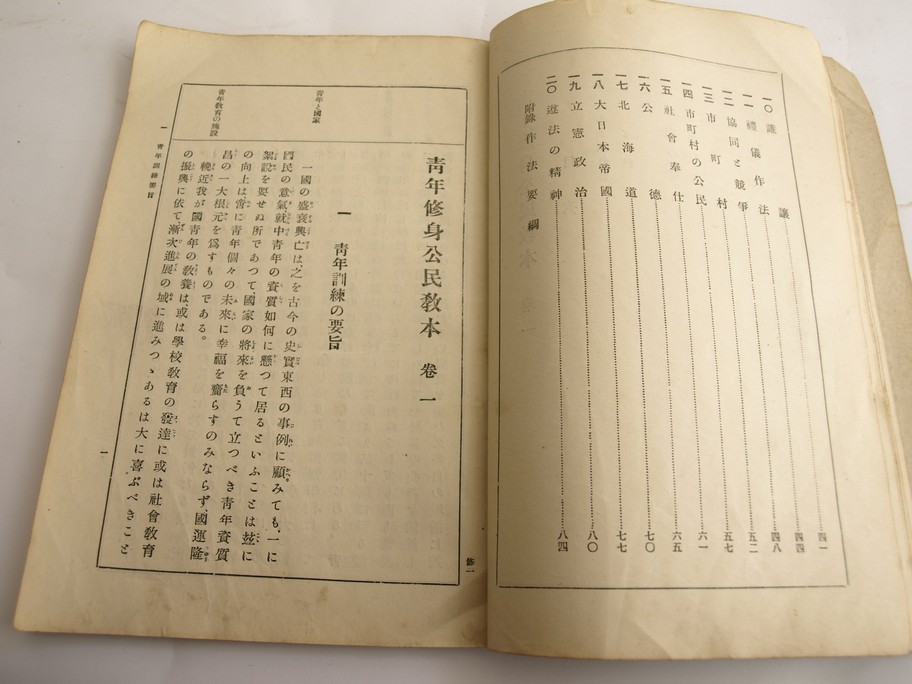 一〇 謙讓 四一
一一 禮儀作法 四四
一二 協同と競爭 四八
一三 市町村 五二
一四 市町村の公民 五七
一五 社會奉仕 六一
一六 公德 六五
一七 北海道 七〇
一八 大日本帝國 七七
一九 立憲政治 八〇
二〇 遵法の精神 八四
附錄 作法要綱
修一
靑年修身公民敎本 卷一
一 靑年訓練の要旨
靑年と國家
一國の盛衰興亡は、之を古今の史實東西の事例に顧みても、一に
國民の意氣就中靑年の資質如何に懸つて居るといふことは玆に
絮說を要せぬ所であつて國家の將來を負うて立つべき靑年資質
の向上は啻に靑年個々の未來に幸福を齎らすのみならず、國運隆
昌の一大根元を爲すものである。
靑年敎育の施設
輓近我が國靑年の敎養は、或は學校敎育の發達に或は社會敎育
の振興に依て漸次進展の域に進みつゝあるは大に喜ぶべきこと
一 靑年訓練の要旨
一